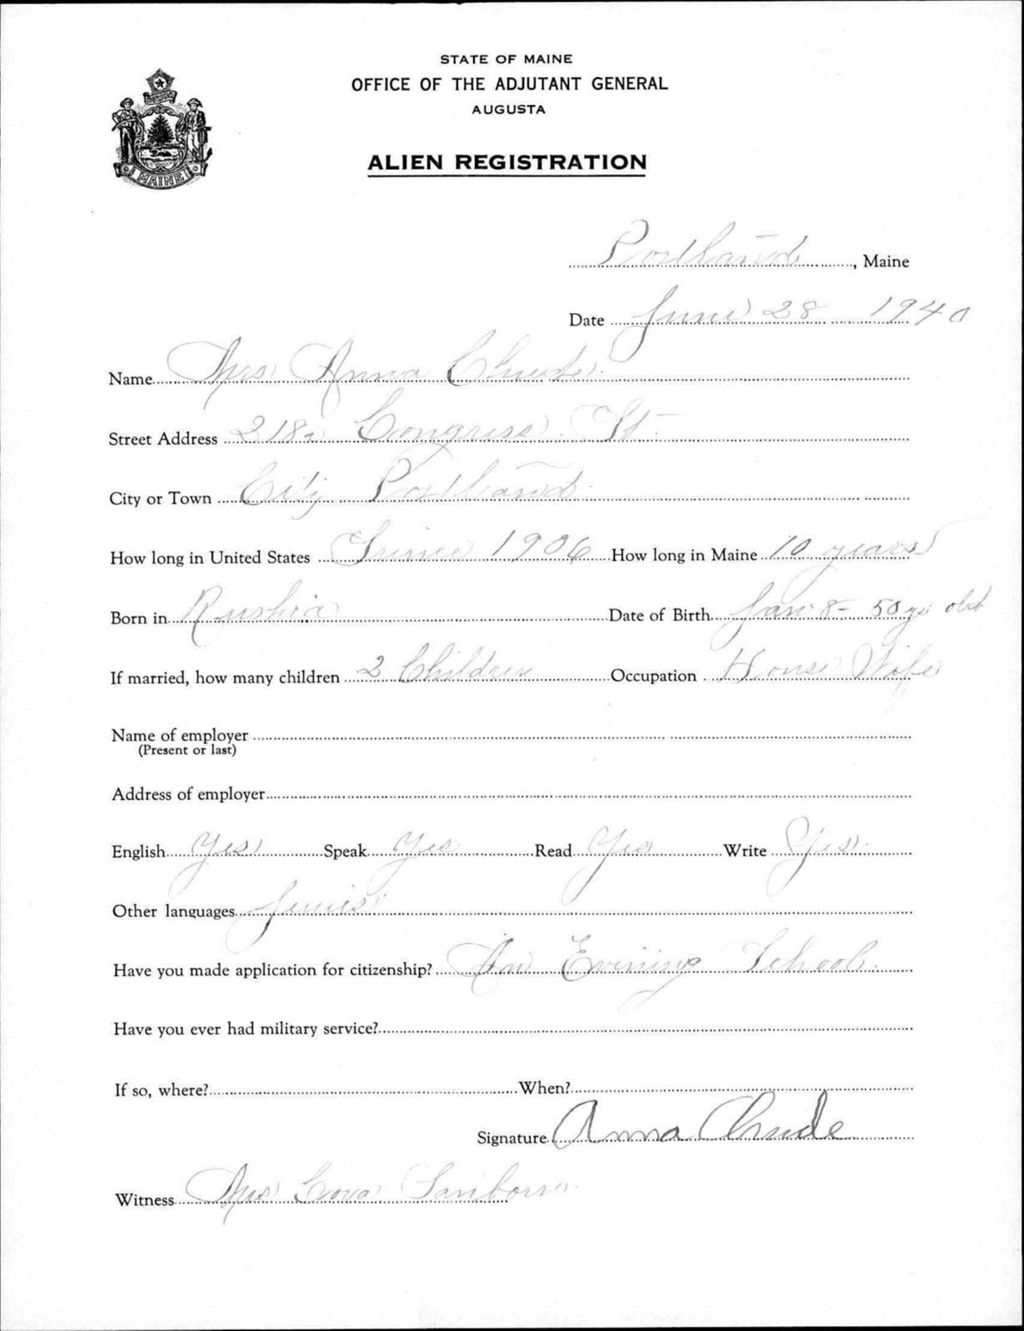 STATE OF MAINE
OFFICE OF THE ADJUTANT GENERAL
AUGUSTA
ALIEN REGISTRATION
MAINE
Portland, Maine
Date June 28 1940
Name Mrs Anna Chude
Street Address 218 Congress St
City or Town City Portland
How long in United States Since 1906 How long in Maine 10 years
Born in Rushia Date of Birth Jan 8 - 50 ys old
If married, how many children 2 Children Occupation House Wife
Name of employer
(Present or last)
Address of employer
English Yes Speak Yes Read Yes Write Yes
Other languages Jewis
Have you made application for citizenship? In Evening School
Have you ever had military service?
If so, where? When?
Signature Anna Chude
Witness Mrs Sanborn